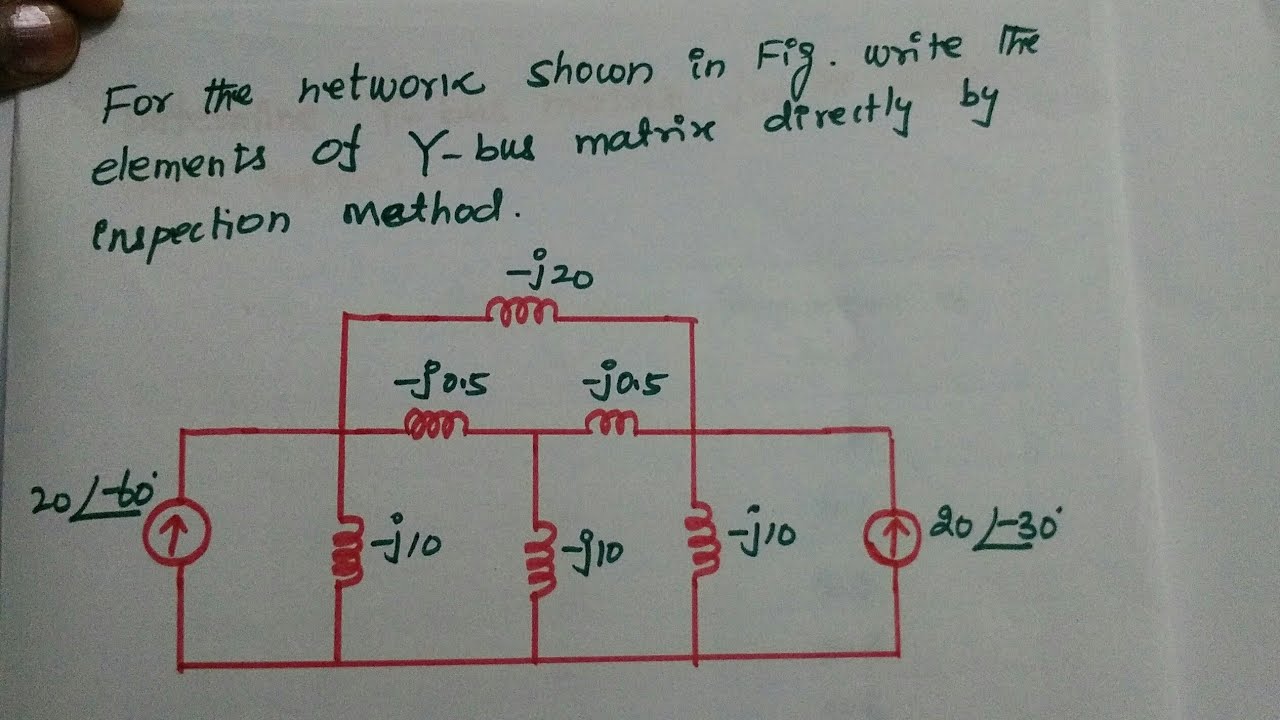 For the network shown in Fig. write the
elements of Y-bus matrix directly by
inspection method.
-j20
-j0.5 -j0.5
20∠-60°
-j10 -j10 -j10
20∠-30°